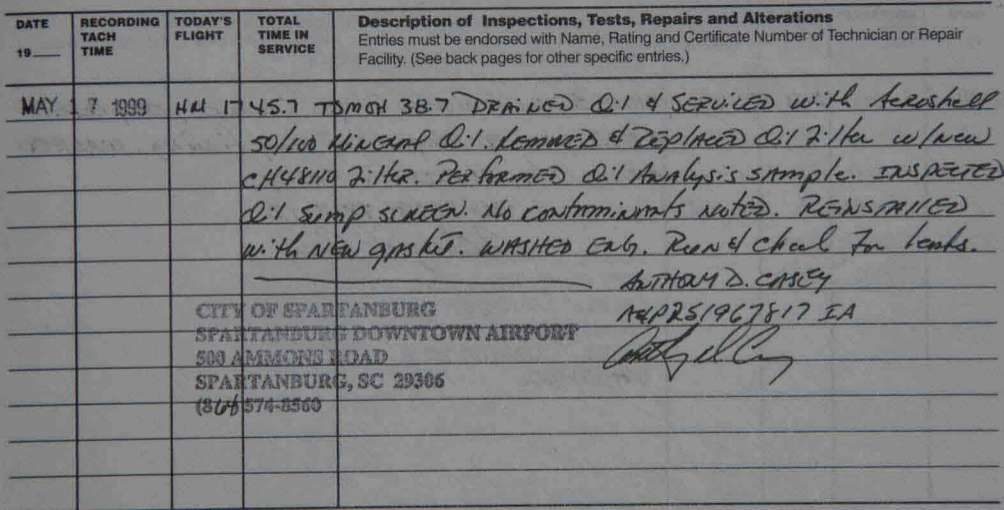 DATE
19
RECORDING TACH TIME
TODAY'S FLIGHT
TOTAL TIME IN SERVICE
Description of Inspections, Tests, Repairs and Alterations
Entries must be endorsed with Name, Rating and Certificate Number of Technician or Repair
Facility. (See back pages for other specific entries.)
MAY 17 1999 HM 1745.7 TSMOH 38.7 DRAINED Oil & SERVICED with Aeroshell
50/100 Mineral Oil. Removed & Replaced Oil Filter w/new
CH48110 Filter. Performed Oil Analysis sample. INSPECTED
Oil Sump SCREEN. No contaminants noted. REINSTALLED
with NEW gasket. WASHED ENG. Run & check For leaks.
ANTHONY D. CASEY
A&P251967817 IA
CITY OF SPARTANBURG
SPARTANBURG DOWNTOWN AIRPORT
500 AMMONS ROAD
SPARTANBURG, SC 29306
(864 574-8560